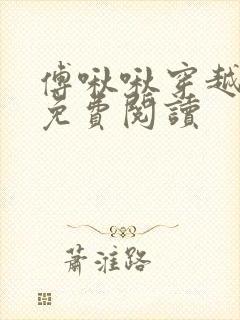 傅啾啾穿越
免費閱讀
蕭淮路